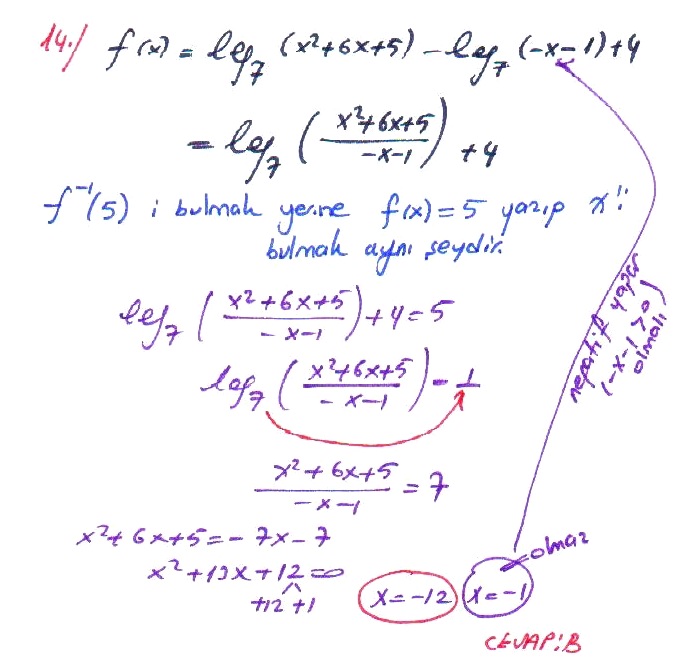 14.) f(x) = log₇ (x²+6x+5) - log₇ (-x-1)+4
= log₇ ( (x²+6x+5)/(-x-1) ) +4
f⁻¹(5) i bulmak yerine f(x)=5 yazıp x'i
bulmak aynı şeydir.
log₇ ( (x²+6x+5)/(-x-1) ) +4=5
log₇ ( (x²+6x+5)/(-x-1) ) = 1
(x²+6x+5)/(-x-1) = 7
x²+6x+5=-7x-7
x²+13x+12=0
+12 +1
x=-12 x=-1
olmaz
negatif yapar
(-x-1>0)
olmalı
CEVAP:B